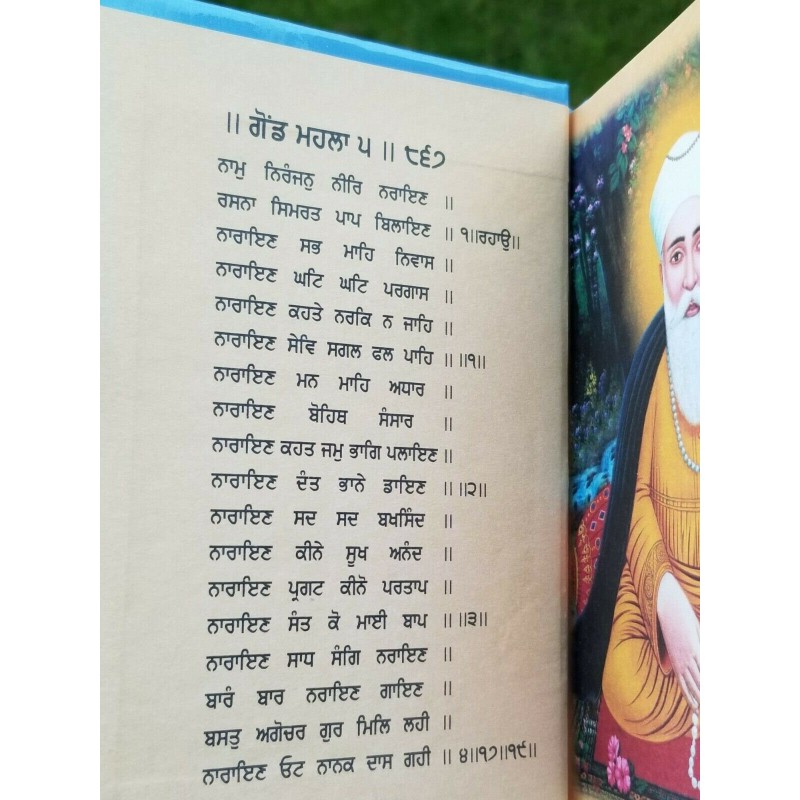 ॥ ਗੋਂਡ ਮਹਲਾ ੫ ॥ ੮੬੭
ਨਾਮੁ ਨਿਰੰਜਨੁ ਨੀਰਿ ਨਰਾਇਣ ॥
ਰਸਨਾ ਸਿਮਰਤ ਪਾਪ ਬਿਲਾਇਣ ॥ ੧॥ਰਹਾਉ॥
ਨਾਰਾਇਣ ਸਭ ਮਾਹਿ ਨਿਵਾਸ ॥
ਨਾਰਾਇਣ ਘਟਿ ਘਟਿ ਪਰਗਾਸ ॥
ਨਾਰਾਇਣ ਕਹਤੇ ਨਰਕਿ ਨ ਜਾਹਿ ॥
ਨਾਰਾਇਣ ਸੇਵਿ ਸਗਲ ਫਲ ਪਾਹਿ ॥ ॥੧॥
ਨਾਰਾਇਣ ਮਨ ਮਾਹਿ ਅਧਾਰ ॥
ਨਾਰਾਇਣ ਬੋਹਿਥ ਸੰਸਾਰ ॥
ਨਾਰਾਇਣ ਕਹਤ ਜਮੁ ਭਾਗਿ ਪਲਾਇਣ ॥
ਨਾਰਾਇਣ ਦੰਤ ਭਾਨੇ ਡਾਇਣ ॥ ॥੨॥
ਨਾਰਾਇਣ ਸਦ ਸਦ ਬਖਸਿੰਦ ॥
ਨਾਰਾਇਣ ਕੀਨੇ ਸੂਖ ਅਨੰਦ ॥
ਨਾਰਾਇਣ ਪ੍ਰਗਟ ਕੀਨੋ ਪਰਤਾਪ ॥
ਨਾਰਾਇਣ ਸੰਤ ਕੋ ਮਾਈ ਬਾਪ ॥ ॥੩॥
ਨਾਰਾਇਣ ਸਾਧ ਸੰਗਿ ਨਰਾਇਣ ॥
ਬਾਰੰ ਬਾਰ ਨਰਾਇਣ ਗਾਇਣ ॥
ਬਸਤੁ ਅਗੋਚਰ ਗੁਰ ਮਿਲਿ ਲਹੀ ॥
ਨਾਰਾਇਣ ਓਟ ਨਾਨਕ ਦਾਸ ਗਹੀ ॥ ੪॥੧੭॥੧੯॥